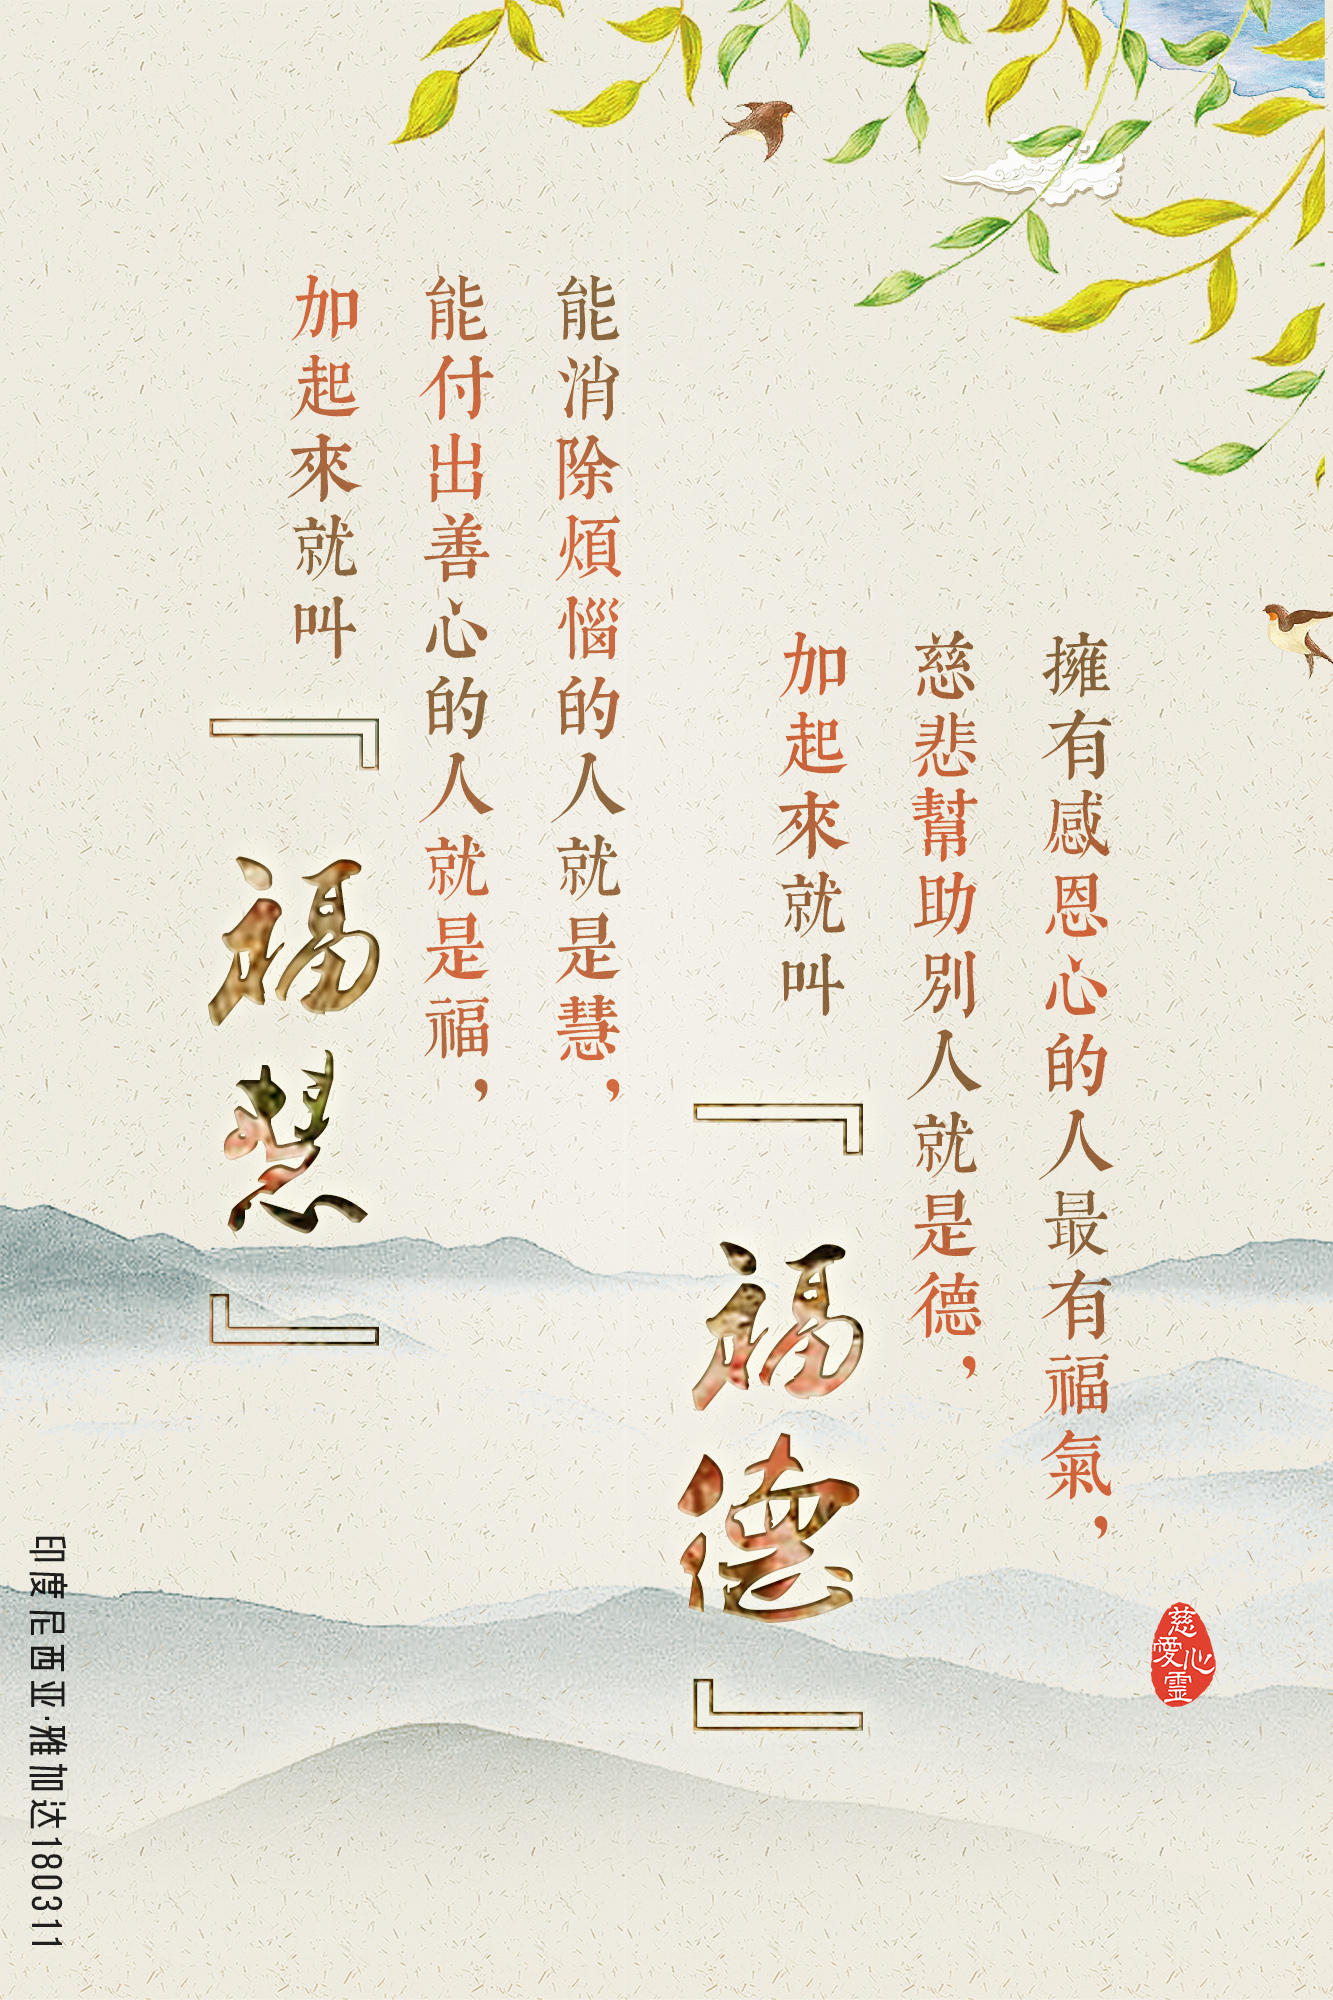 擁有感恩心的人最有福氣，
慈悲幫助別人就是德，
加起來就叫
『福德』
能消除煩惱的人就是慧，
能付出善心的人就是福，
加起來就叫
『福慧』
慈愛心靈
印度尼西亚·雅加达180311